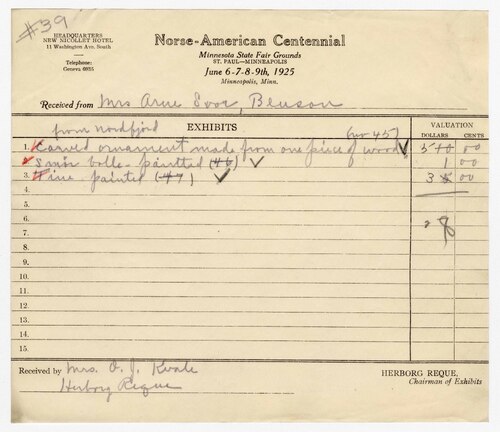 #39
HEADQUARTERS
NEW NICOLLET HOTEL
11 Washington Ave. South
Telephone:
Geneva 6935
Norse-American Centennial
Minnesota State Fair Grounds
ST. PAUL—MINNEAPOLIS
June 6-7-8-9th, 1925
Minneapolis, Minn.
Received from Mrs Arne Benson
from nordfjord
EXHIBITS
(no 45)
VALUATION
DOLLARS CENTS
1. Carved ornament made from one piece of wood 00
2. Smör bolle - painted (46) 1 00
3. Tine painted (47) 3 00
4.
5.
6. 8
7.
8.
9.
10.
11.
12.
13.
14.
15.
Received by Mrs. O. J. Kvale
Herborg Reque
HERBORG REQUE,
Chairman of Exhibits